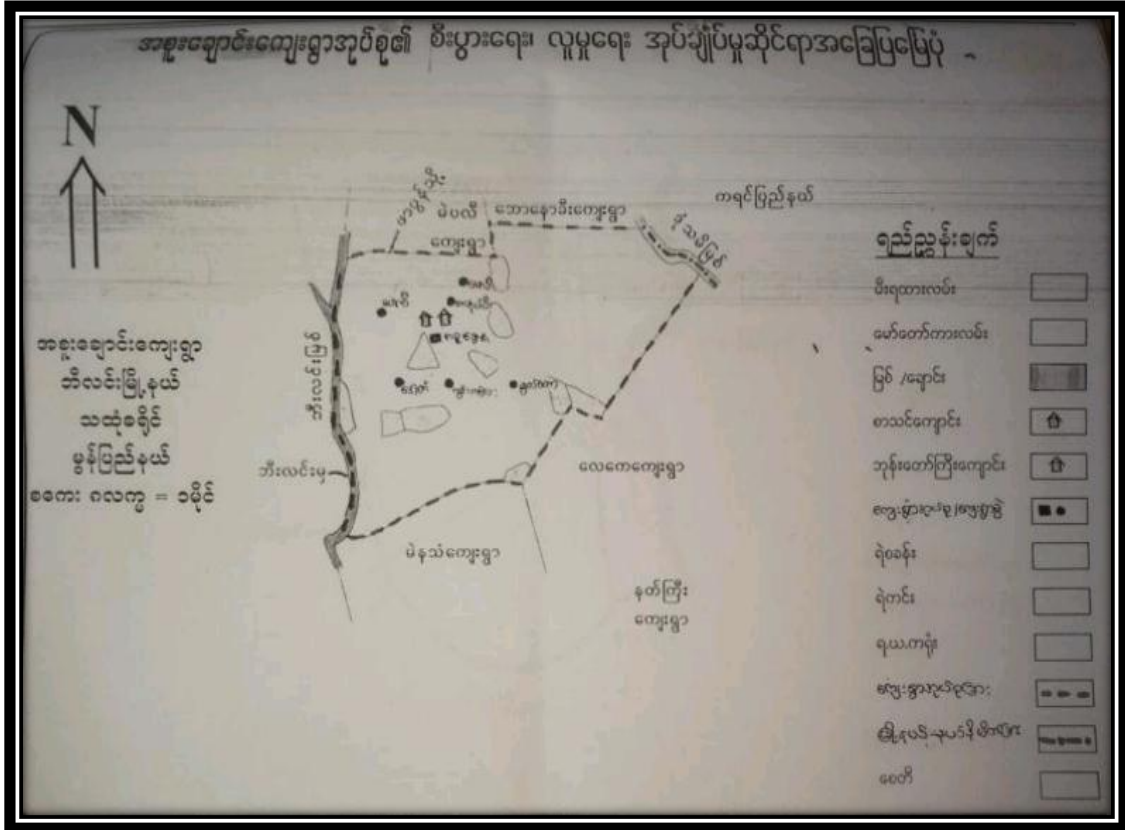 အစူးချောင်းကျေးရွာအုပ်စု၏ စီးပွားရေး၊ လူမှုရေး အုပ်ချုပ်မှုဆိုင်ရာအခြေပြမြေပုံ
N
အစူးချောင်းကျေးရွာ
ဘီလင်းမြို့နယ်
သထုံခရိုင်
မွန်ပြည်နယ်
စကေး ၁လက္မ = ၁မိုင်
မဲပလီ
ကျေးရွာ
ဘောနောခီးကျေးရွာ
ကရင်ပြည်နယ်
ဒုံသမိမြစ်
ဘီးလင်းမြစ်
ဘီးလင်းမှ
လေကေကျေးရွာ
မဲနသံကျေးရွာ
နတ်ကြီး
ကျေးရွာ
ရည်ညွှန်းချက်
မီးရထားလမ်း
မော်တော်ကားလမ်း
မြစ် /ချောင်း
စာသင်ကျောင်း
ဘုန်းတော်ကြီးကျောင်း
ကျေးရွာအုပ်စု/ကျေးရွာခွဲ
ရဲစခန်း
ရဲကင်း
ရ.ယ.ကရုံး
ကျေးရွာအုပ်စုခြား
စေတီ